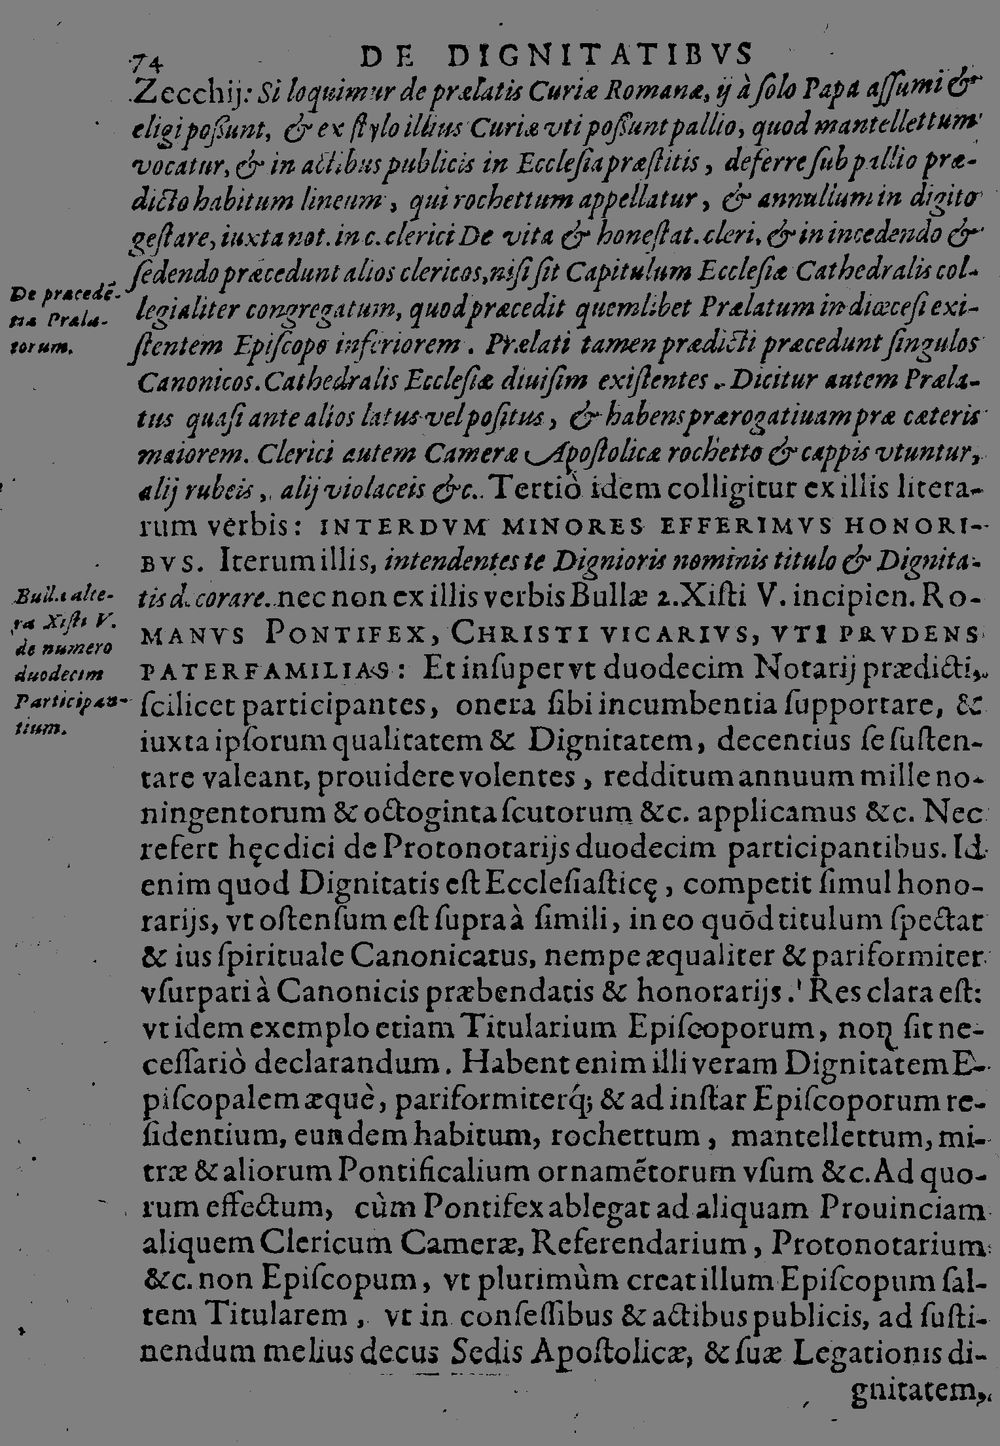 74 DE DIGNITATIBVS
Zecchij: Si loquimur de prælatis Curiæ Romanæ, ij à ſolo Papa aſſumi &
eligi poſſunt, & ex ſtylo illius Curiæ vti poſſunt pallio, quod mantellettum
vocatur, & in actibus publicis in Eccleſia præſtitis, deferre ſub pallio præ-
dicto habitum lineum, qui rochettum appellatur, & annulium in digito
geſtare, iuxta not. in c. clerici De vita & honeſtat. cleri, & in incedendo &
ſedendo præcedunt alios clericos, niſi ſit Capitulum Eccleſiæ Cathedralis col-
legialiter congregatum, quod præcedit quemlibet Prælatum in diœceſi exi-
ſtentem Epiſcopo inferiorem. Prælati tamen prædicti præcedunt ſingulos
Canonicos. Cathedralis Eccleſiæ diuiſim exiſtentes. Dicitur autem Præla-
tus quaſi ante alios latus vel poſitus, & habens prærogatiuam præ cæteris
maiorem. Clerici autem Cameræ Apoſtolicæ rochetto & cappis vtuntur,
alij rubeis, alij violaceis &c. Tertiò idem colligitur ex illis litera-
rum verbis: INTERDVM MINORES EFFERIMVS HONORI-
BVS. Iterum illis, intendentes te Dignioris nominis titulo & Dignita-
tis decorare. nec non ex illis verbis Bullæ 2. Xiſti V. incipien. RO-
MANVS PONTIFEX, CHRISTI VICARIVS, VTI PRVDENS
PATERFAMILIAS: Et inſuper vt duodecim Notarij prædicti,
ſcilicet participantes, onera ſibi incumbentia ſupportare, &
iuxta ipſorum qualitatem & Dignitatem, decentius ſe ſuſten-
tare valeant, prouidere volentes, redditum annuum mille no-
ningentorum & octoginta ſcutorum &c. applicamus &c. Nec
refert hęc dici de Protonotarijs duodecim participantibus. Id
enim quod Dignitatis eſt Eccleſiaſticę, competit ſimul hono-
rarijs, vt oſtenſum eſt ſupra à ſimili, in eo quōd titulum ſpectat
& ius ſpirituale Canonicatus, nempe æqualiter & pariformiter
vſurpari à Canonicis præbendatis & honorarijs. Res clara eſt:
vt idem exemplo etiam Titularium Epiſcoporum, non ſit ne-
ceſſariò declarandum. Habent enim illi veram Dignitatem E-
piſcopalem æquè, pariformiterq́; & ad inſtar Epiſcoporum re-
ſidentium, eundem habitum, rochettum, mantellettum, mi-
træ & aliorum Pontificalium ornamētorum vſum &c. Ad quo-
rum effectum, cùm Pontifex ablegat ad aliquam Prouinciam
aliquem Clericum Cameræ, Referendarium, Protonotarium
&c. non Epiſcopum, vt plurimùm creat illum Epiſcopum ſal-
tem Titularem, vt in conſeſſibus & actibus publicis, ad ſuſti-
nendum melius decus Sedis Apoſtolicæ, & ſuæ Legationis di-
gnitatem,
De præcedē-
tia Præla-
torum.
Bulla alte-
ra Xiſti V.
de numero
duodecim
Participan-
tium.